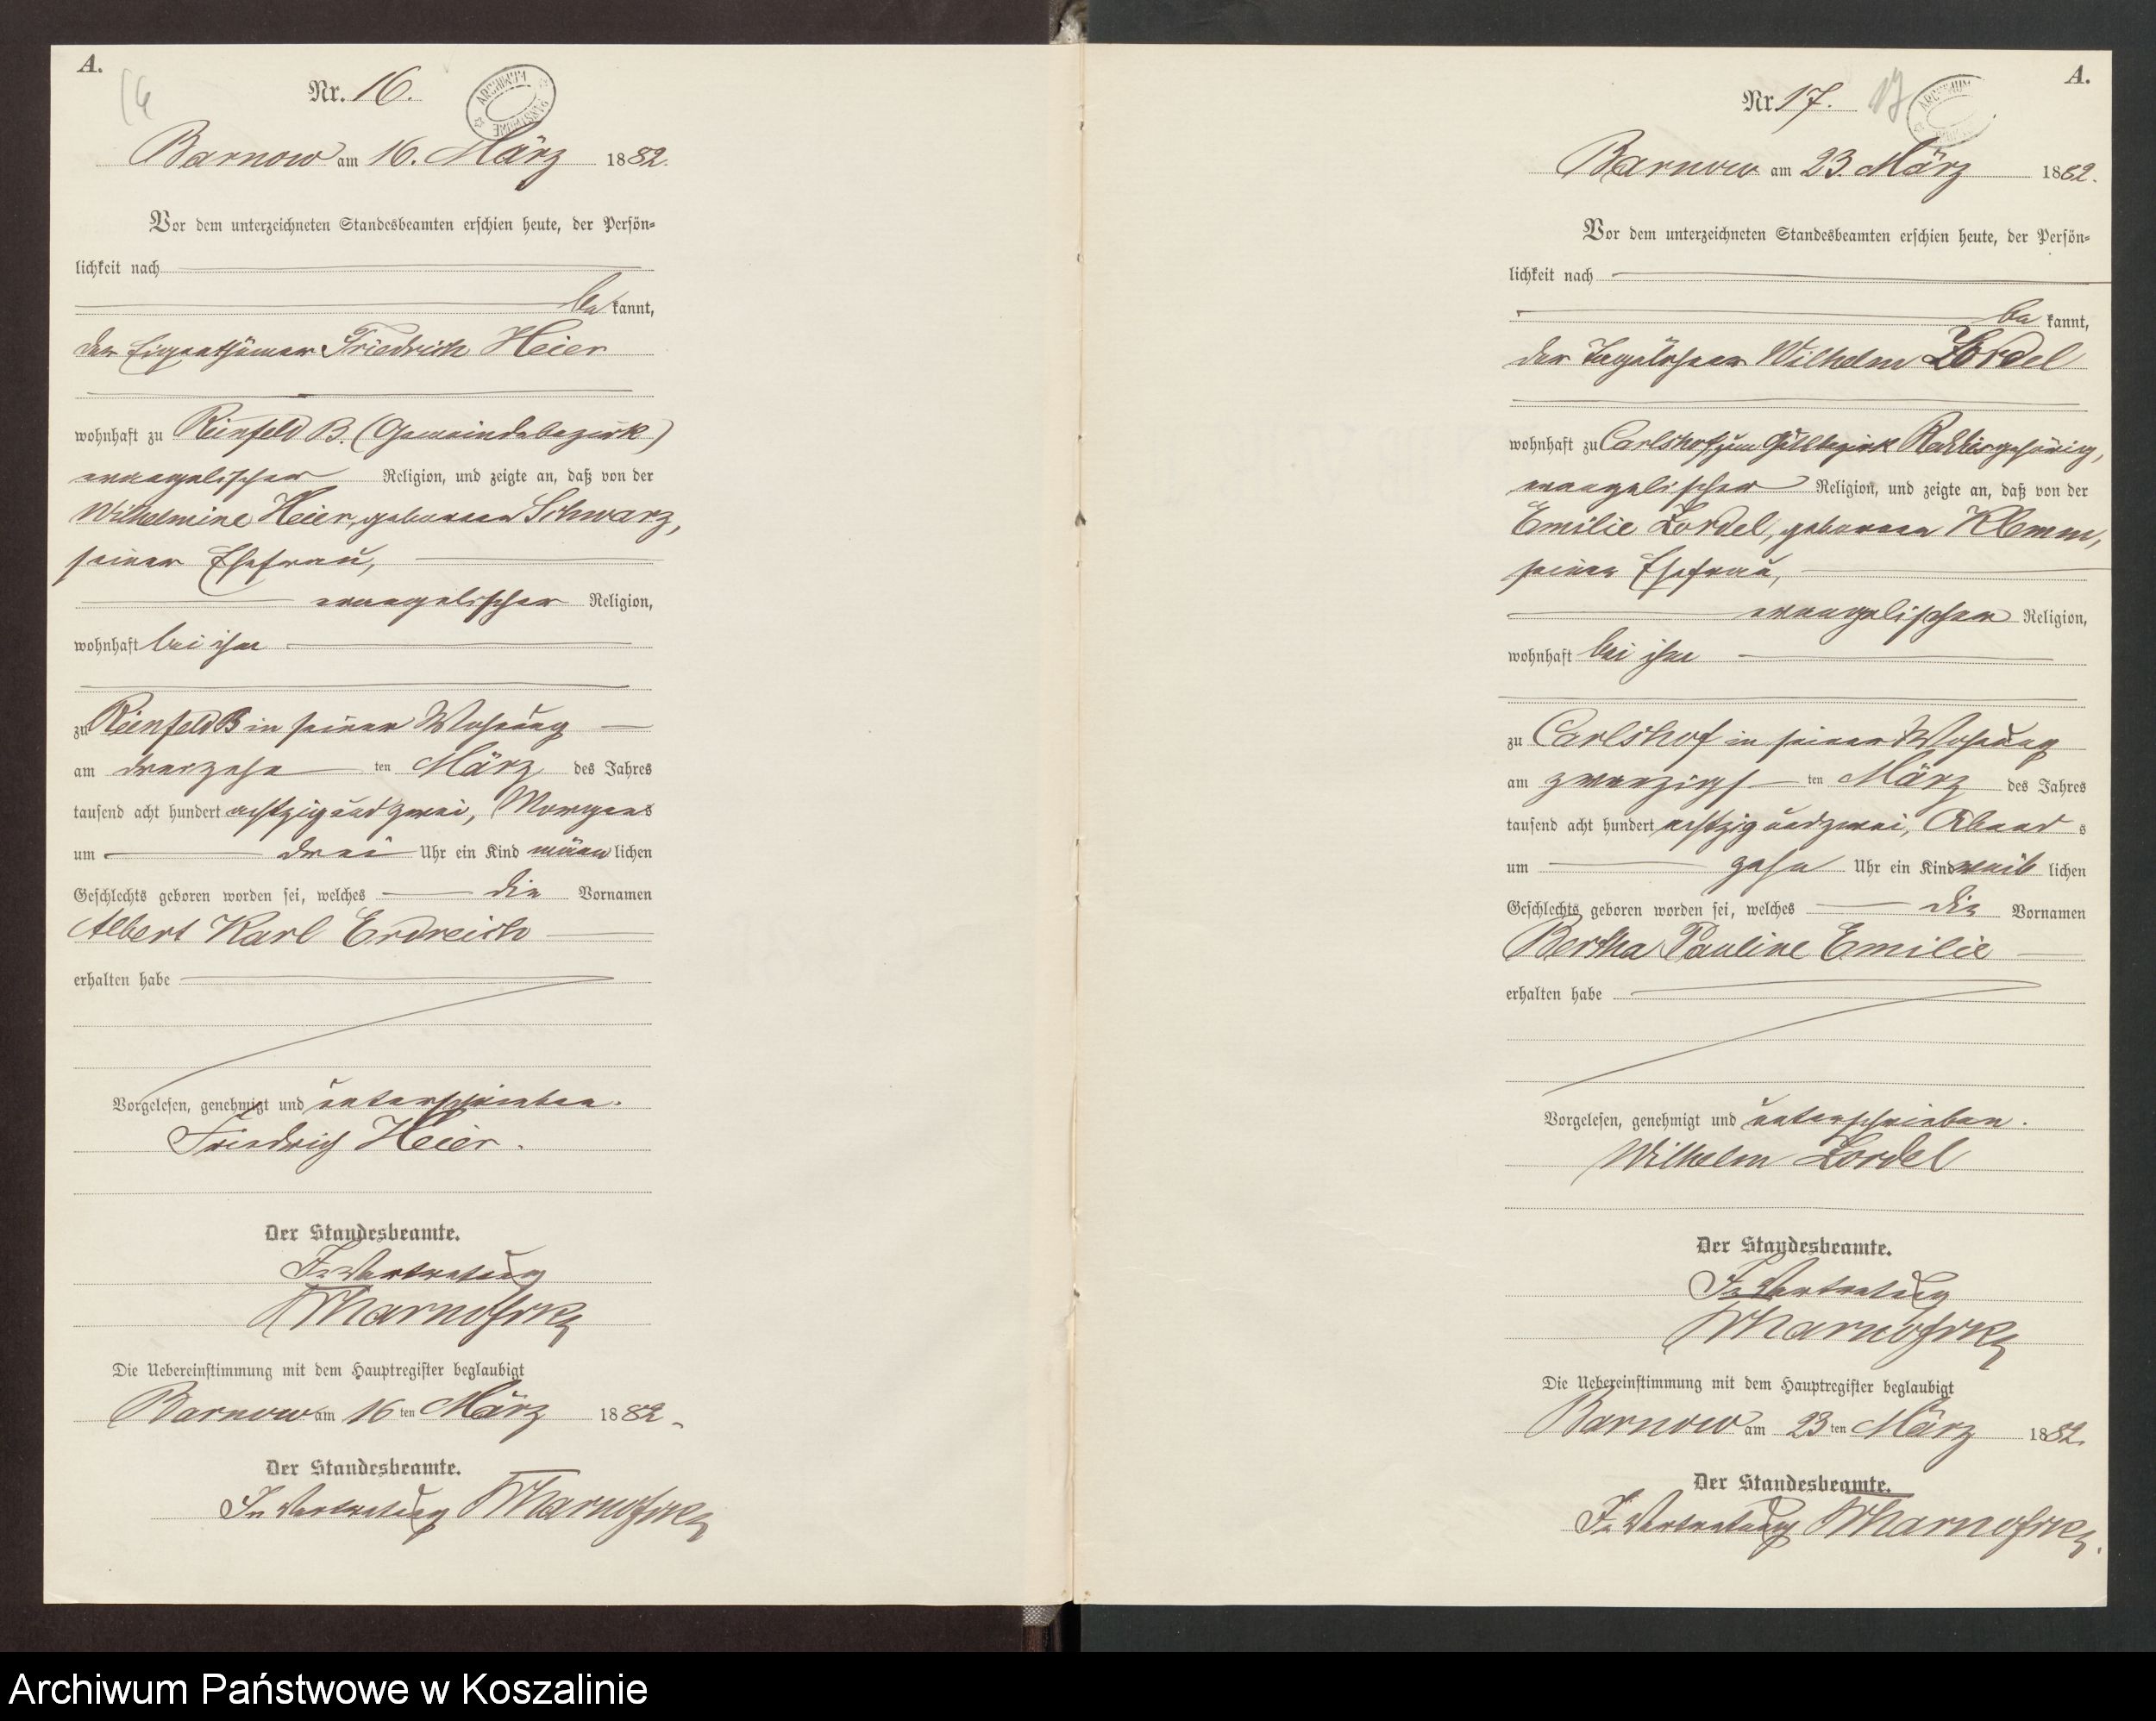 A.
16
Nr. 16.
ARCHIWUM PAŃSTWOWE
Barnow am 16. März 1882.
Vor dem unterzeichneten Standesbeamten erschien heute, der Persön-
lichkeit nach
be kannt,
der Eigenthümer Friedrich Heier
wohnhaft zu Reinfeld B. (Gemeindebezirk)
evangelischer Religion, und zeigte an, daß von der
Wilhelmine Heier, geborenen Schwarz,
seiner Ehefrau,
evangelischer Religion,
wohnhaft bei ihm
zu Reinfeld B in seiner Wohnung
am dreizehn ten März des Jahres
tausend acht hundert achtzig und zwei, Morgens
um drei Uhr ein Kind männ lichen
Geschlechts geboren worden sei, welches die Vornamen
Albert Karl Erdreich
erhalten habe
Vorgelesen, genehmigt und unterschrieben.
Friedrich Heier.
Der Standesbeamte.
In Vertretung
Die Uebereinstimmung mit dem Hauptregister beglaubigt
Barnow am 16 ten März 1882.
Der Standesbeamte.
In Vertretung
A.
Nr 17. 17
ARCHIWUM
Barnow am 23. März 1882.
Vor dem unterzeichneten Standesbeamten erschien heute, der Persön-
lichkeit nach
be kannt,
der Tagelöhner Wilhelm Lordel
wohnhaft zu Carlshof zum Gutsbezirk gehörig,
evangelischer Religion, und zeigte an, daß von der
Emilie Lordel, geborenen Klemm,
seiner Ehefrau,
evangelischer Religion,
wohnhaft bei ihm
zu Carlshof in seiner Wohnung
am zwanzigs ten März des Jahres
tausend acht hundert achtzig und zwei, Abend s
um zehn Uhr ein Kind weib lichen
Geschlechts geboren worden sei, welches die Vornamen
Bertha Pauline Emilie
erhalten habe
Vorgelesen, genehmigt und unterschrieben.
Wilhelm Lordel
Der Standesbeamte.
In Vertretung
Die Uebereinstimmung mit dem Hauptregister beglaubigt
Barnow am 23 ten März 1882.
Der Standesbeamte.
In Vertretung
Archiwum Państwowe w Koszalinie